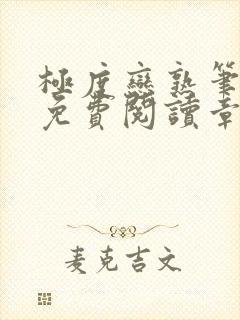 極度戀熟筆
免費閱讀章
麦克吉文